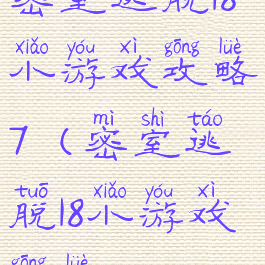 密室逃脱18
xiǎo yóu xì gōng lüè
小游戏攻略
mì shì táo
7（密室逃
tuō xiǎo yóu xì
脱18小游戏
gōng lüè